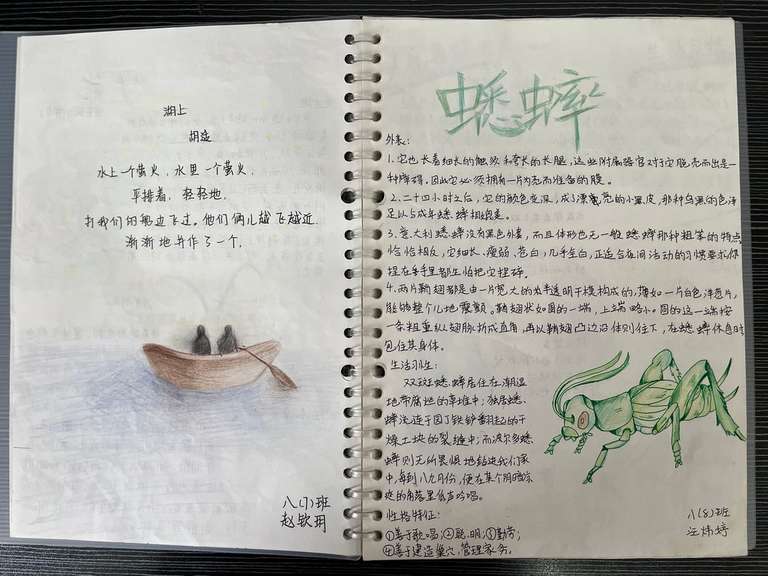 湖上
胡适
水上一个萤火,水里一个萤火,
平排着,轻轻地,
打我们的船边飞过。他们俩儿越飞越近,
渐渐地并作了一个。
八(1)班
赵钦玥
蟋蟀
外表:
1.它也长着细长的触须和夸长的长腿,这些附属器官对于它脱壳而出是一
种障碍。因此它必须拥有一片为壳而准备的膜。
2.二十四小时之后,它的颜色变深,成了漂亮的小黑皮,那种乌黑的色泽
足以与成年蟋蟀相媲美。
3.意大利蟋蟀没有黑色外套,而且体形也无一般蟋蟀那种粗笨的特点,
恰恰相反,它细长、瘦弱、苍白,几乎全白,正适合夜间活动的习惯要求你
捏在手里都生怕把它捏碎。
4.两片鞘翅都是由一片宽大的为半透明干膜构成的,薄如一片白色洋葱片,
能够整个儿地震颤。鞘翅状如圆的一端,上端略小。圆的这一端按
一条粗重纵翅脉折成直角,再以鞘翅凸边沿体则往下,在蟋蟀休息时
包住其身体。
生活习性:
双斑蟋蟀居住在潮湿
地带腐烂的草堆中;独居蟋
蟀流连于园丁铁铲翻起的干
燥土块的裂缝中;而波尔多蟋
蟀则无所畏惧地钻进我们家
中,每到八九月份,便在某个阴暗凉
爽的角落里低声吟唱。
性格特征:
①善于歌唱;②聪明;③勤劳;
④善于建造巢穴,管理家务。
八(8)班
汪炜婷